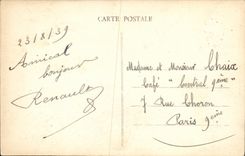 CARTE POSTALE
23/8/39
Amical
bonjour
Renault
Madame et Monsieur Chaix
Café "Central 9ème"
7 Rue Choron
Paris 9ème